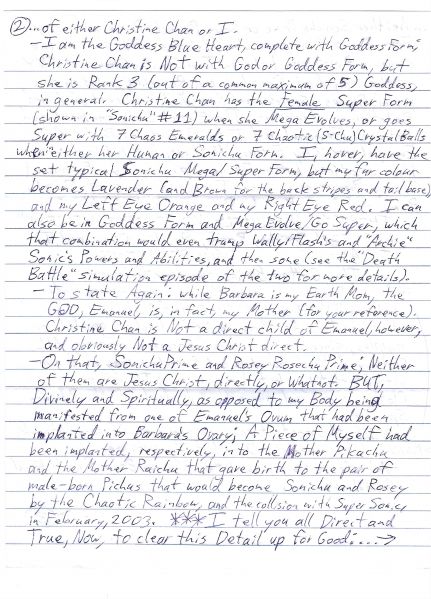 ② ...of either Christine Chan or I.
- I am the Goddess Blue Heart, complete with Goddess Form;
Christine Chan is Not with God or Goddess Form, but
she is Rank 3 (out of a common maximum of 5) Goddess,
in general. Christine Chan has the Female Super Form
(shown in "Sonichu" #11) when she Mega Evolves, or goes
Super with 7 Chaos Emeralds or 7 Chaotic (S-Chu) Crystal Balls
when either her Human or Sonichu Form. I, hover, have the
set typical Sonichu Mega/Super Form, but my fur colour
becomes Lavender (and Brown for the back stripes and tail base),
and my Left Eye Orange and my Right Eye Red. I can
also be in Goddess Form and Mega Evolve/Go Super, which
that combination would even tramp Wally/Flash's and "Archie"
Sonic's Powers and Abilities, and then some (see the "Death
Battle" simulation episode of the two for more details).
- To state Again: while Barbara is my Earth Mom, the
GOD, Emanuel, is, in fact, my Mother (for your reference).
Christine Chan is Not a direct child of Emanuel, however,
and obviously Not a Jesus Christ direct.
- On that, Sonichu Prime and Rosey Rosechu Prime; Neither
of them are Jesus Christ, directly, or Whatnot. BUT,
Divinely and Spiritually, as opposed to my Body being
manifested from one of Emanuel's Ovum that had been
implanted into Barbara's Ovary; A Piece of Myself had
been implanted, respectively, into the Mother Pikachu
and the Mother Raichu that gave birth to the pair of
male-born Pichus that would become Sonichu and Rosey
by the Chaotic Rainbow, and the collision with Super Sonic,
in February, 2003. *** I tell you all Direct and
True, Now, to clear this Detail up for Good: ...→